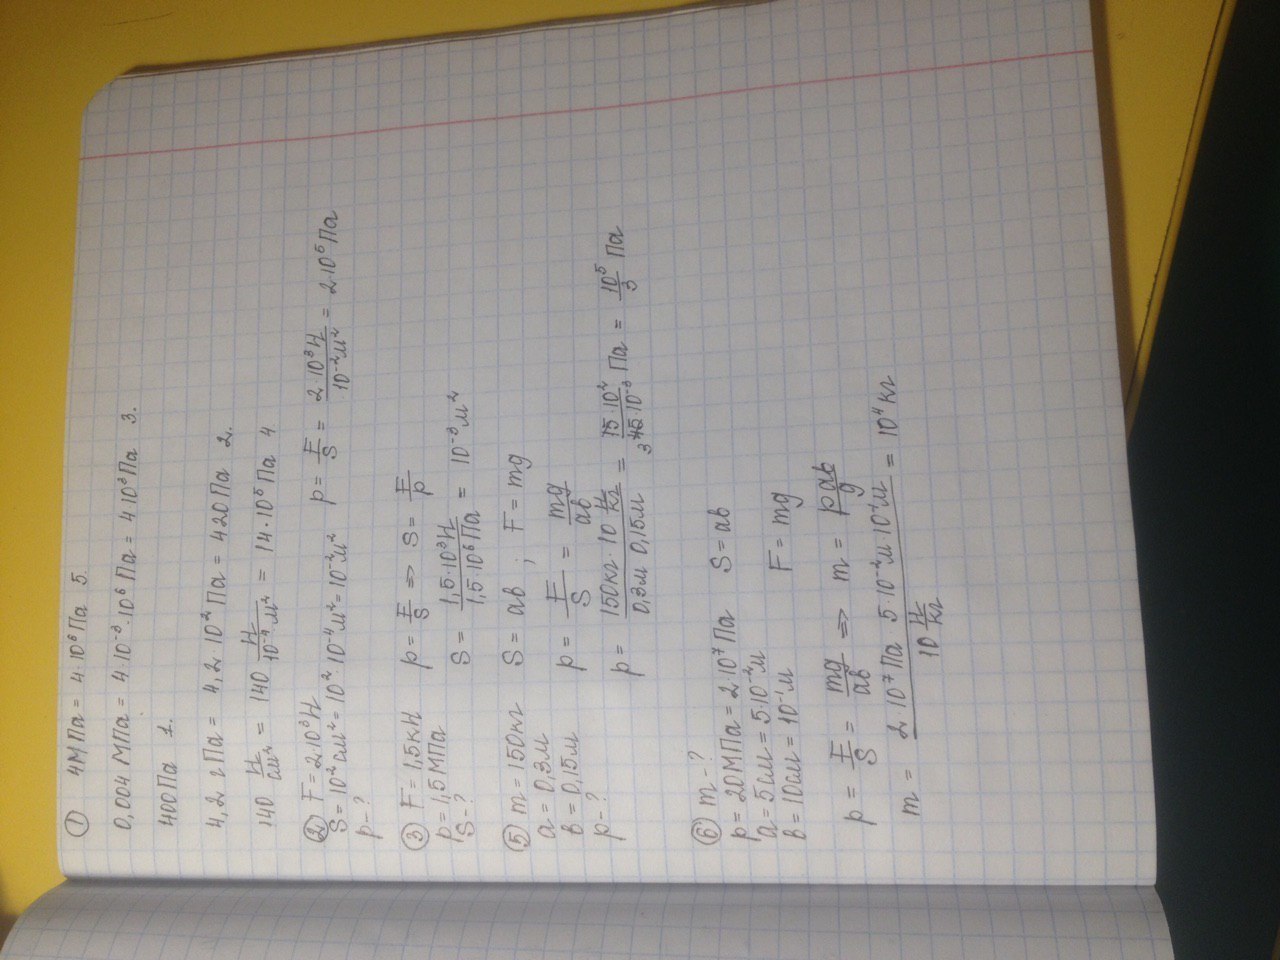 ① 4МПа = 4·10⁶Па 5.
0,004 МПа = 4·10⁻³·10⁶Па = 4·10³Па 3.
400Па 1.
4,2 гПа = 4,2·10²Па = 420Па 2.
140 Н/см² = 140· Н/10⁻⁴м² = 14·10⁵Па 4
② F=2·10³Н
S=10²см²=10²·10⁻⁴м²=10⁻²м² p= F/S = 2·10³Н/10⁻²м² = 2·10⁵Па
p-?
③ F=1,5кН p= F/S => S= F/p
p=1,5МПа
S-? S= 1,5·10³Н/1,5·10⁶Па = 10⁻³м²
⑤ m=150кг S=ab ; F=mg
a=0,3м
b=0,15м p= F/S = mg/ab
p-?
p= 150кг·10 Н/кг / 0,3м 0,15м = 15·10²/3 45·10⁻³ Па = 10⁵/3 Па
⑥ m-?
p=20МПа=2·10⁷Па S=ab
a=5см=5·10⁻²м
b=10см=10⁻¹м F=mg
p= F/S = mg/ab => m= pab/g
m= 2·10⁷Па 5·10⁻²м 10⁻¹м / 10 Н/кг = 10⁴кг